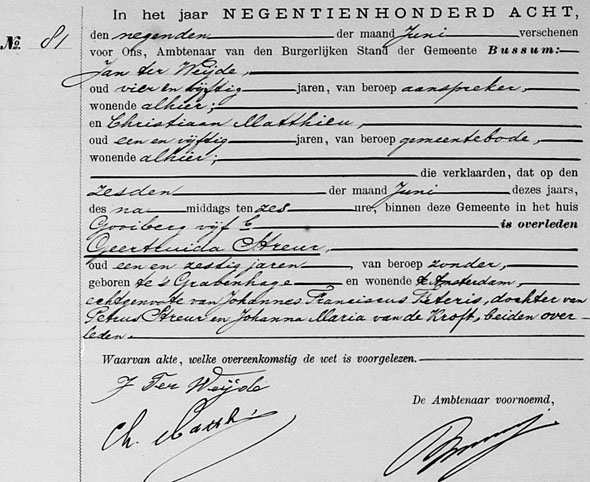 In het jaar NEGENTIENHONDERD ACHT,
No. 81
den negenden der maand Juni verschenen
voor Ons, Ambtenaar van den Burgerlijken Stand der Gemeente Bussum:
Jan ter Weijde,
oud vier en vijftig jaren, van beroep aanspreker,
wonende alhier;
en Christiaan Matthieu,
oud een en vijftig jaren, van beroep gemeentebode,
wonende alhier;
die verklaarden, dat op den
zesden der maand Juni dezes jaars,
des na middags ten zes ure, binnen deze Gemeente in het huis
Gooiberg vijf is overleden
Geertruida Streur,
oud een en zestig jaren, van beroep zonder,
geboren te 's Gravenhage en wonende te Amsterdam,
echtgenoote van Johannes Franciscus Peteris, dochter van
Petrus Streur en Johanna Maria van de Kroft, beiden over-
leden.
Waarvan akte, welke overeenkomstig de wet is voorgelezen.
J Ter Weijde
De Ambtenaar voornoemd,
Ch.